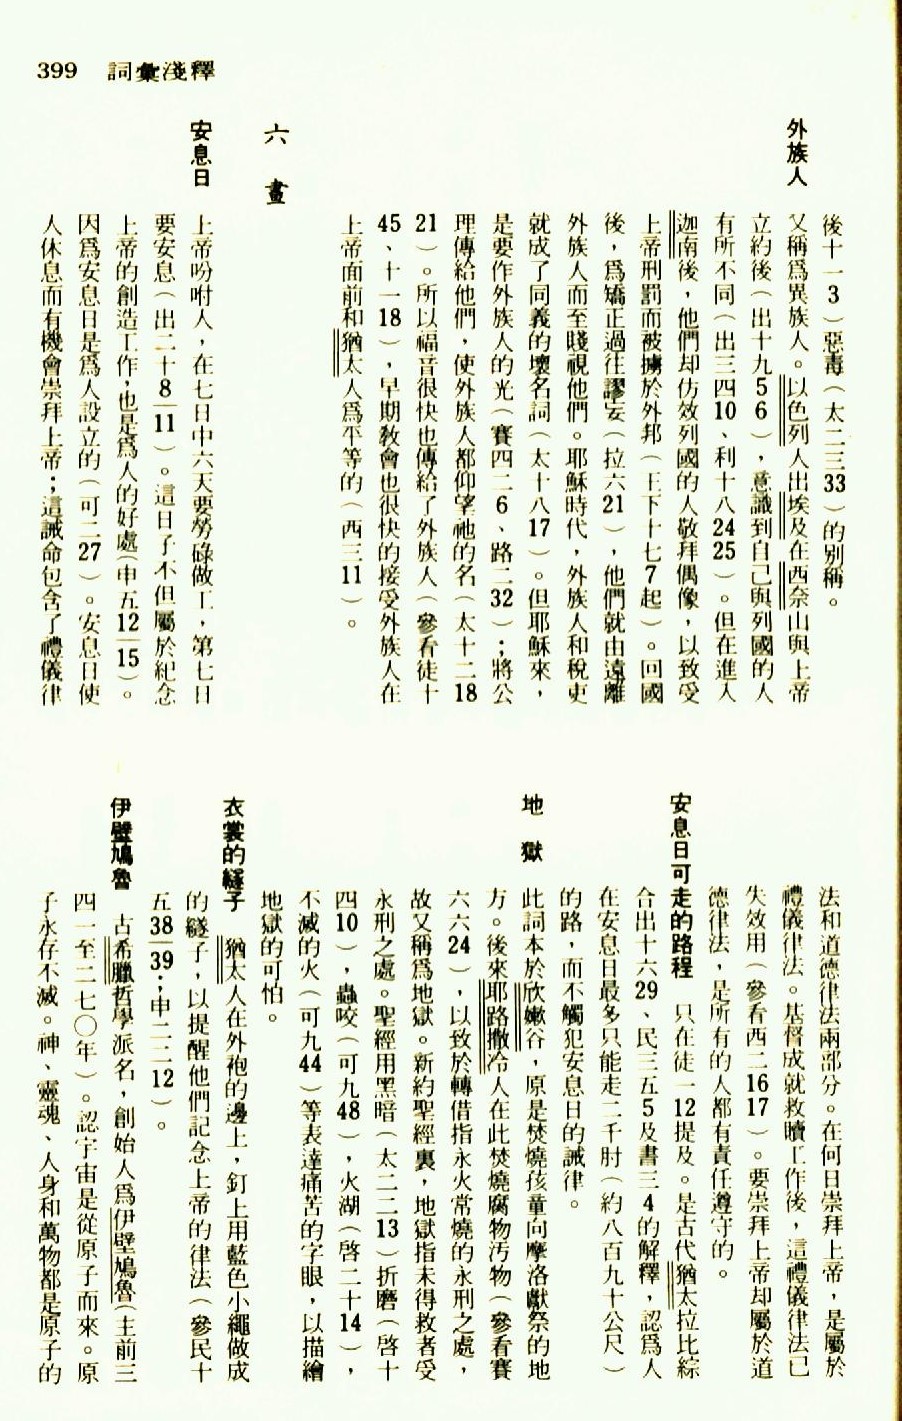 399 詞彙淺釋
後十一3）惡毒（太二三33）的別稱。
外族人
又稱爲異族人。以色列人出埃及在西奈山與上帝
立約後（出十九5 6），意識到自己與列國的人
有所不同（出三四10、利十八24 25）。但在進入
迦南後，他們却仿效列國的人敬拜偶像，以致受
上帝刑罰而被擄於外邦（王下十七7起）。回國
後，爲矯正過往謬妄（拉六21），他們就由遠離
外族人而至賤視他們。耶穌時代，外族人和稅吏
就成了同義的壞名詞（太十八17）。但耶穌來，
是要作外族人的光（賽四二6、路二32）；將公
理傳給他們，使外族人都仰望祂的名（太十二18
21）。所以福音很快也傳給了外族人（參看徒十
45、十一18），早期敎會也很快的接受外族人在
上帝面前和猶太人爲平等的（西三11）。
六 畫
安息日
上帝吩咐人，在七日中六天要勞碌做工，第七日
要安息（出二十8｜11）。這日子不但屬於紀念
上帝的創造工作，也是爲人的好處（申五12｜15）。
因爲安息日是爲人設立的（可二27）。安息日使
人休息而有機會崇拜上帝；這誡命包含了禮儀律
法和道德律法兩部分。在何日崇拜上帝，是屬於
禮儀律法。基督成就救贖工作後，這禮儀律法已
失效用（參看西二16 17）。要崇拜上帝却屬於道
德律法，是所有的人都有責任遵守的。
安息日可走的路程 只在徒一12提及。是古代猶太拉比綜
合出十六29、民三五5及書三4的解釋，認爲人
在安息日最多只能走二千肘（約八百九十公尺）
的路，而不觸犯安息日的誡律。
地 獄
此詞本於欣嫩谷，原是焚燒孩童向摩洛獻祭的地
方。後來耶路撒冷人在此焚燒腐物汚物（參看賽
六六24），以致於轉借指永火常燒的永刑之處，
故又稱爲地獄。新約聖經裏，地獄指未得救者受
永刑之處。聖經用黑暗（太二二13）折磨（啓十
四10），蟲咬（可九48），火湖（啓二十14），
不滅的火（可九44）等表達痛苦的字眼，以描繪
地獄的可怕。
衣裳的繸子 猶太人在外袍的邊上，釘上用藍色小繩做成
的繸子，以提醒他們記念上帝的律法（參民十
五38｜39；申二二12）。
伊壁鳩魯 古希臘哲學派名，創始人爲伊壁鳩魯（主前三
四一至二七〇年）。認宇宙是從原子而來。原
子永存不滅。神、靈魂、人身和萬物都是原子的